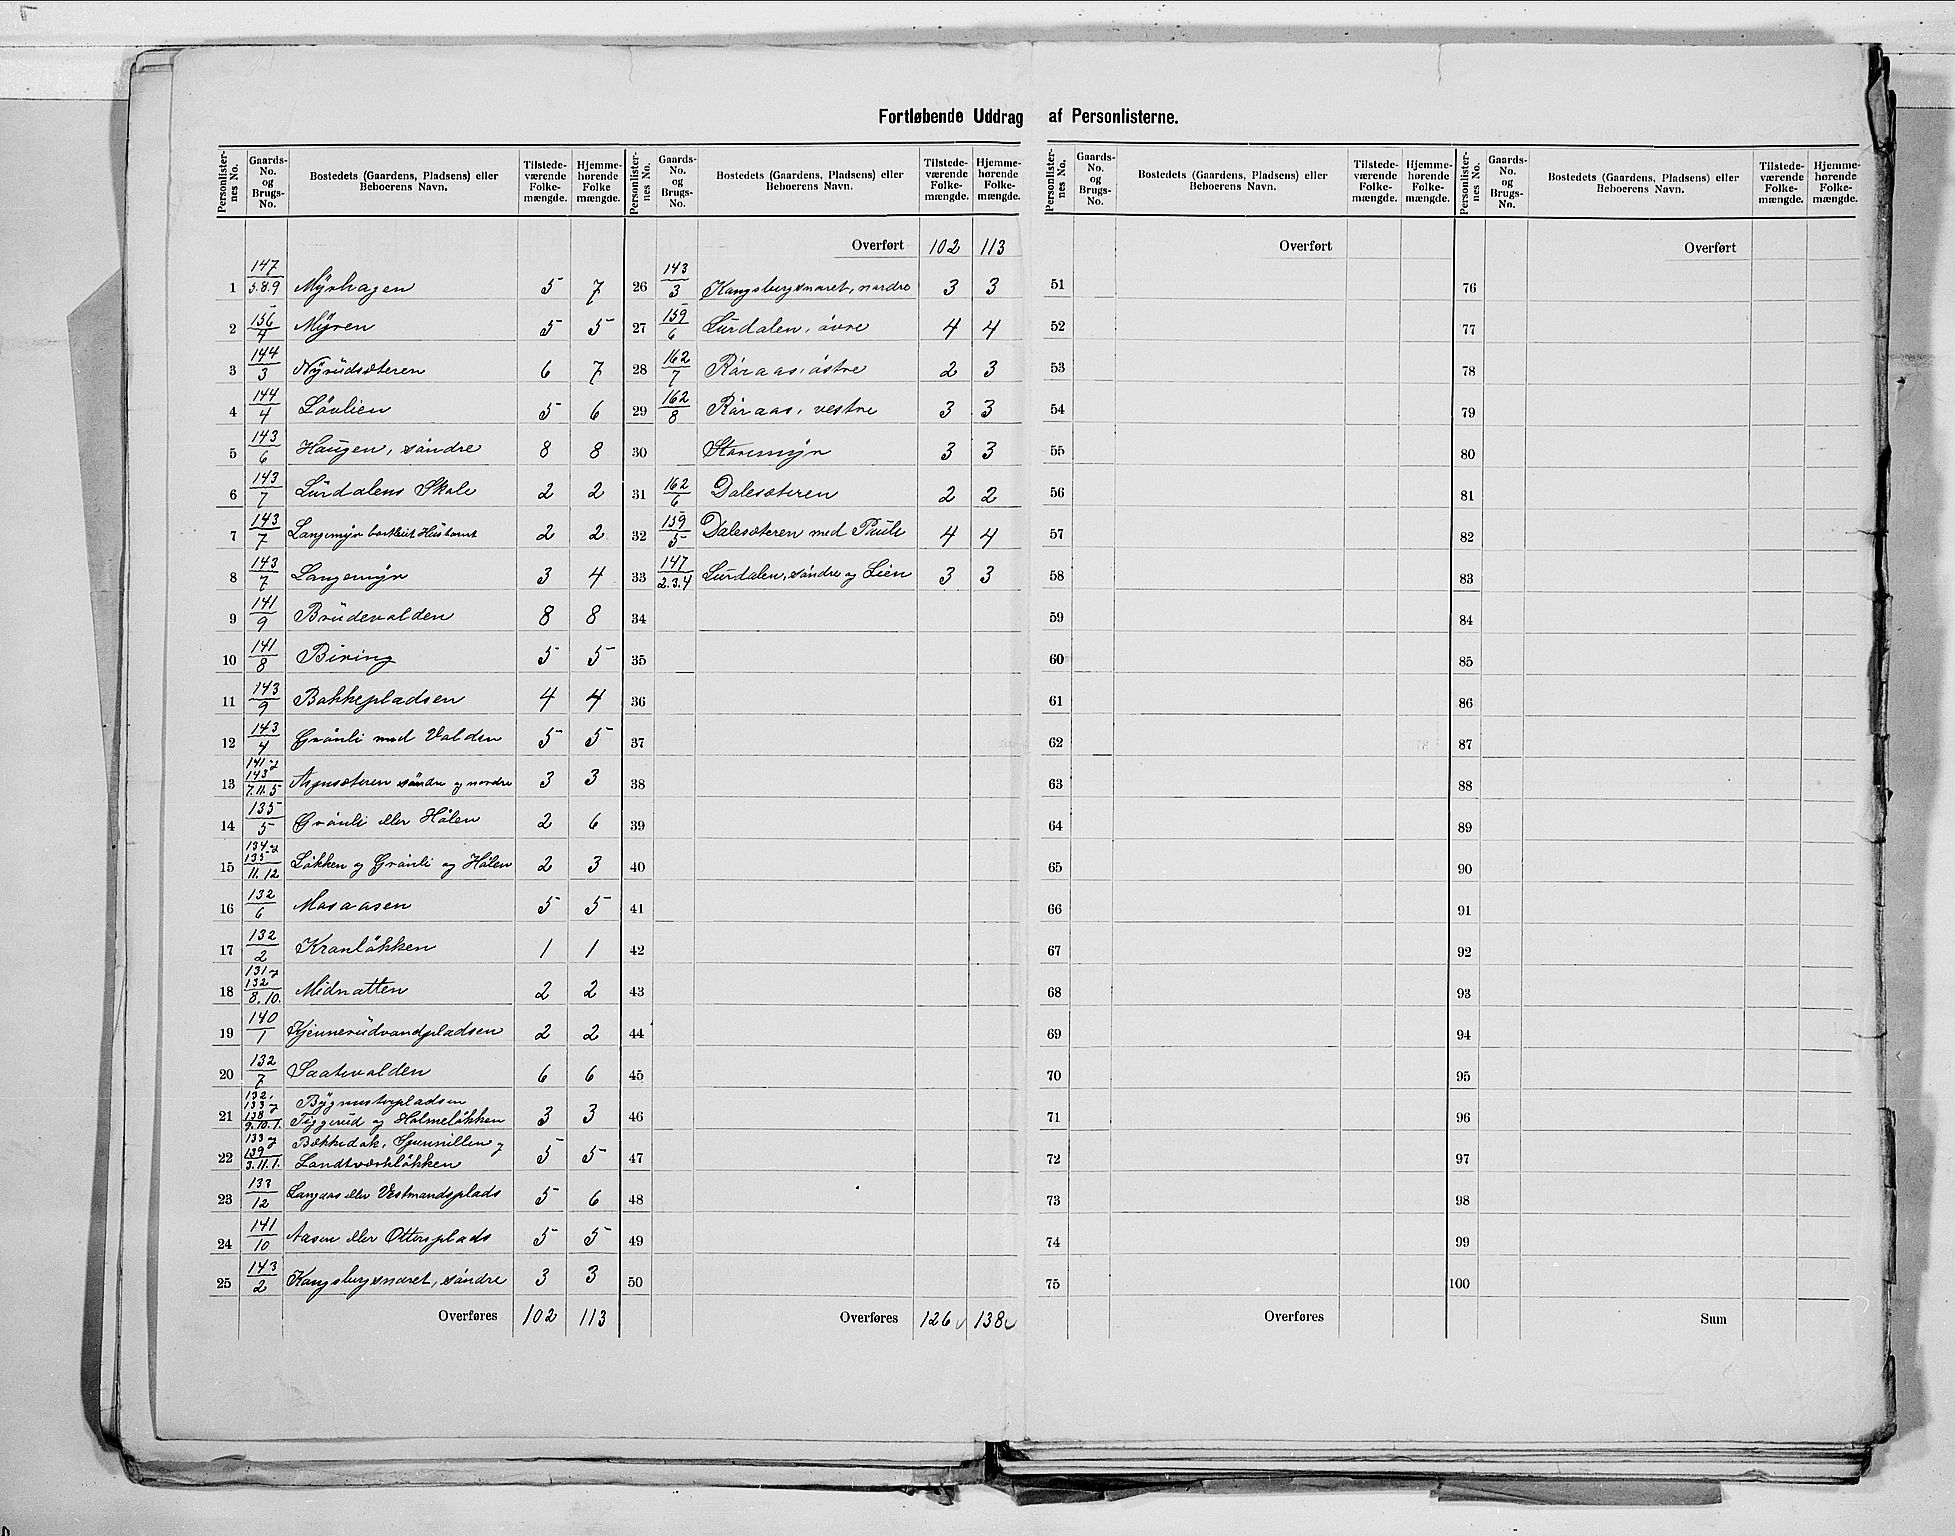 Fortløbende Uddrag af Personlisterne.
Personlister-nes No. | Gaards-No. og Brugs-No. | Bostedets (Gaardens, Pladsens) eller Beboerens Navn. | Tilstede-værende Folke-mængde. | Hjemme-hørende Folke mængde.
1 | 147/5.8.9 | Myrhagen | 5 | 7
2 | 156/4 | Myren | 5 | 5
3 | 144/3 | Nyrudsæteren | 6 | 7
4 | 144/4 | Lövlien | 5 | 6
5 | 143/6 | Haugen, söndre | 8 | 8
6 | 143/7 | Lurdalens Skole | 2 | 2
7 | 143/7 | Langemyr | 2 | 2
8 | 143/7 | Langemyr | 3 | 4
9 | 141/9 | Brudevolden | 8 | 8
10 | 141/8 | Biring | 5 | 5
11 | 143/9 | Bakkepladsen | 4 | 4
12 | 143/4 | Grönli med Volden | 5 | 5
13 | 141 og 143/7.11.5 | söndre og nordre | 3 | 3
14 | 135/5 | Grönli eller Hölen | 2 | 6
15 | 134 og 135/11.12 | Lökken og Grönli og Hölen | 2 | 3
16 | 132/6 | Mosaasen | 5 | 5
17 | 132/2 | Kranlökken | 1 | 1
18 | 131 og 132/8.10. | Midnatten | 2 | 2
19 | 140/1 | Kjennerudvandpladsen | 2 | 2
20 | 132/7 | Saatevolden | 6 | 6
21 | 132, 133 og 138/9.10.1. | Bygmesterpladsen Tiggerud og Holmelökken | 3 | 3
22 | 133 og 139/3.11.1. | og Landtværklökken | 5 | 5
23 | 133/12 | Langaas eller Vestmandsplads | 5 | 6
24 | 141/10 | Aasen eller Ottersplads | 5 | 5
25 | 143/2 | Kongsbergsnaret, söndre | 3 | 3
Overføres | 102 | 113
Personlister-nes No. | Gaards-No. og Brugs-No. | Bostedets (Gaardens, Pladsens) eller Beboerens Navn. | Tilstede-værende Folke-mængde. | Hjemme-hørende Folke-mængde.
Overført | 102 | 113
26 | 143/3 | Kongsbergsnaret, nordre | 3 | 3
27 | 159/6 | Lurdalen, övre | 4 | 4
28 | 162/7 | Röraas, östre | 2 | 3
29 | 162/8 | Röraas, vestre | 3 | 3
30 | Storemyr | 3 | 3
31 | 162/6 | Dalesæteren | 2 | 2
32 | 159/5 | Dalesæteren med Paule | 4 | 4
33 | 147/2.3.4 | Lurdalen, söndre og Lien | 3 | 3
34
35
36
37
38
39
40
41
42
43
44
45
46
47
48
49
50
Overføres | 126 | 138
Personlister-nes No. | Gaards-No. og Brugs-No. | Bostedets (Gaardens, Pladsens) eller Beboerens Navn. | Tilstede-værende Folke-mængde. | Hjemme-hørende Folke-mængde.
Overført
51
52
53
54
55
56
57
58
59
60
61
62
63
64
65
66
67
68
69
70
71
72
73
74
75
Overføres
Personlister-nes No. | Gaards-No. og Brugs-No. | Bostedets (Gaardens, Pladsens) eller Beboerens Navn. | Tilstede-værende Folke-mængde. | Hjemme-hørende Folke-mængde.
Overført
76
77
78
79
80
81
82
83
84
85
86
87
88
89
90
91
92
93
94
95
96
97
98
99
100
Sum